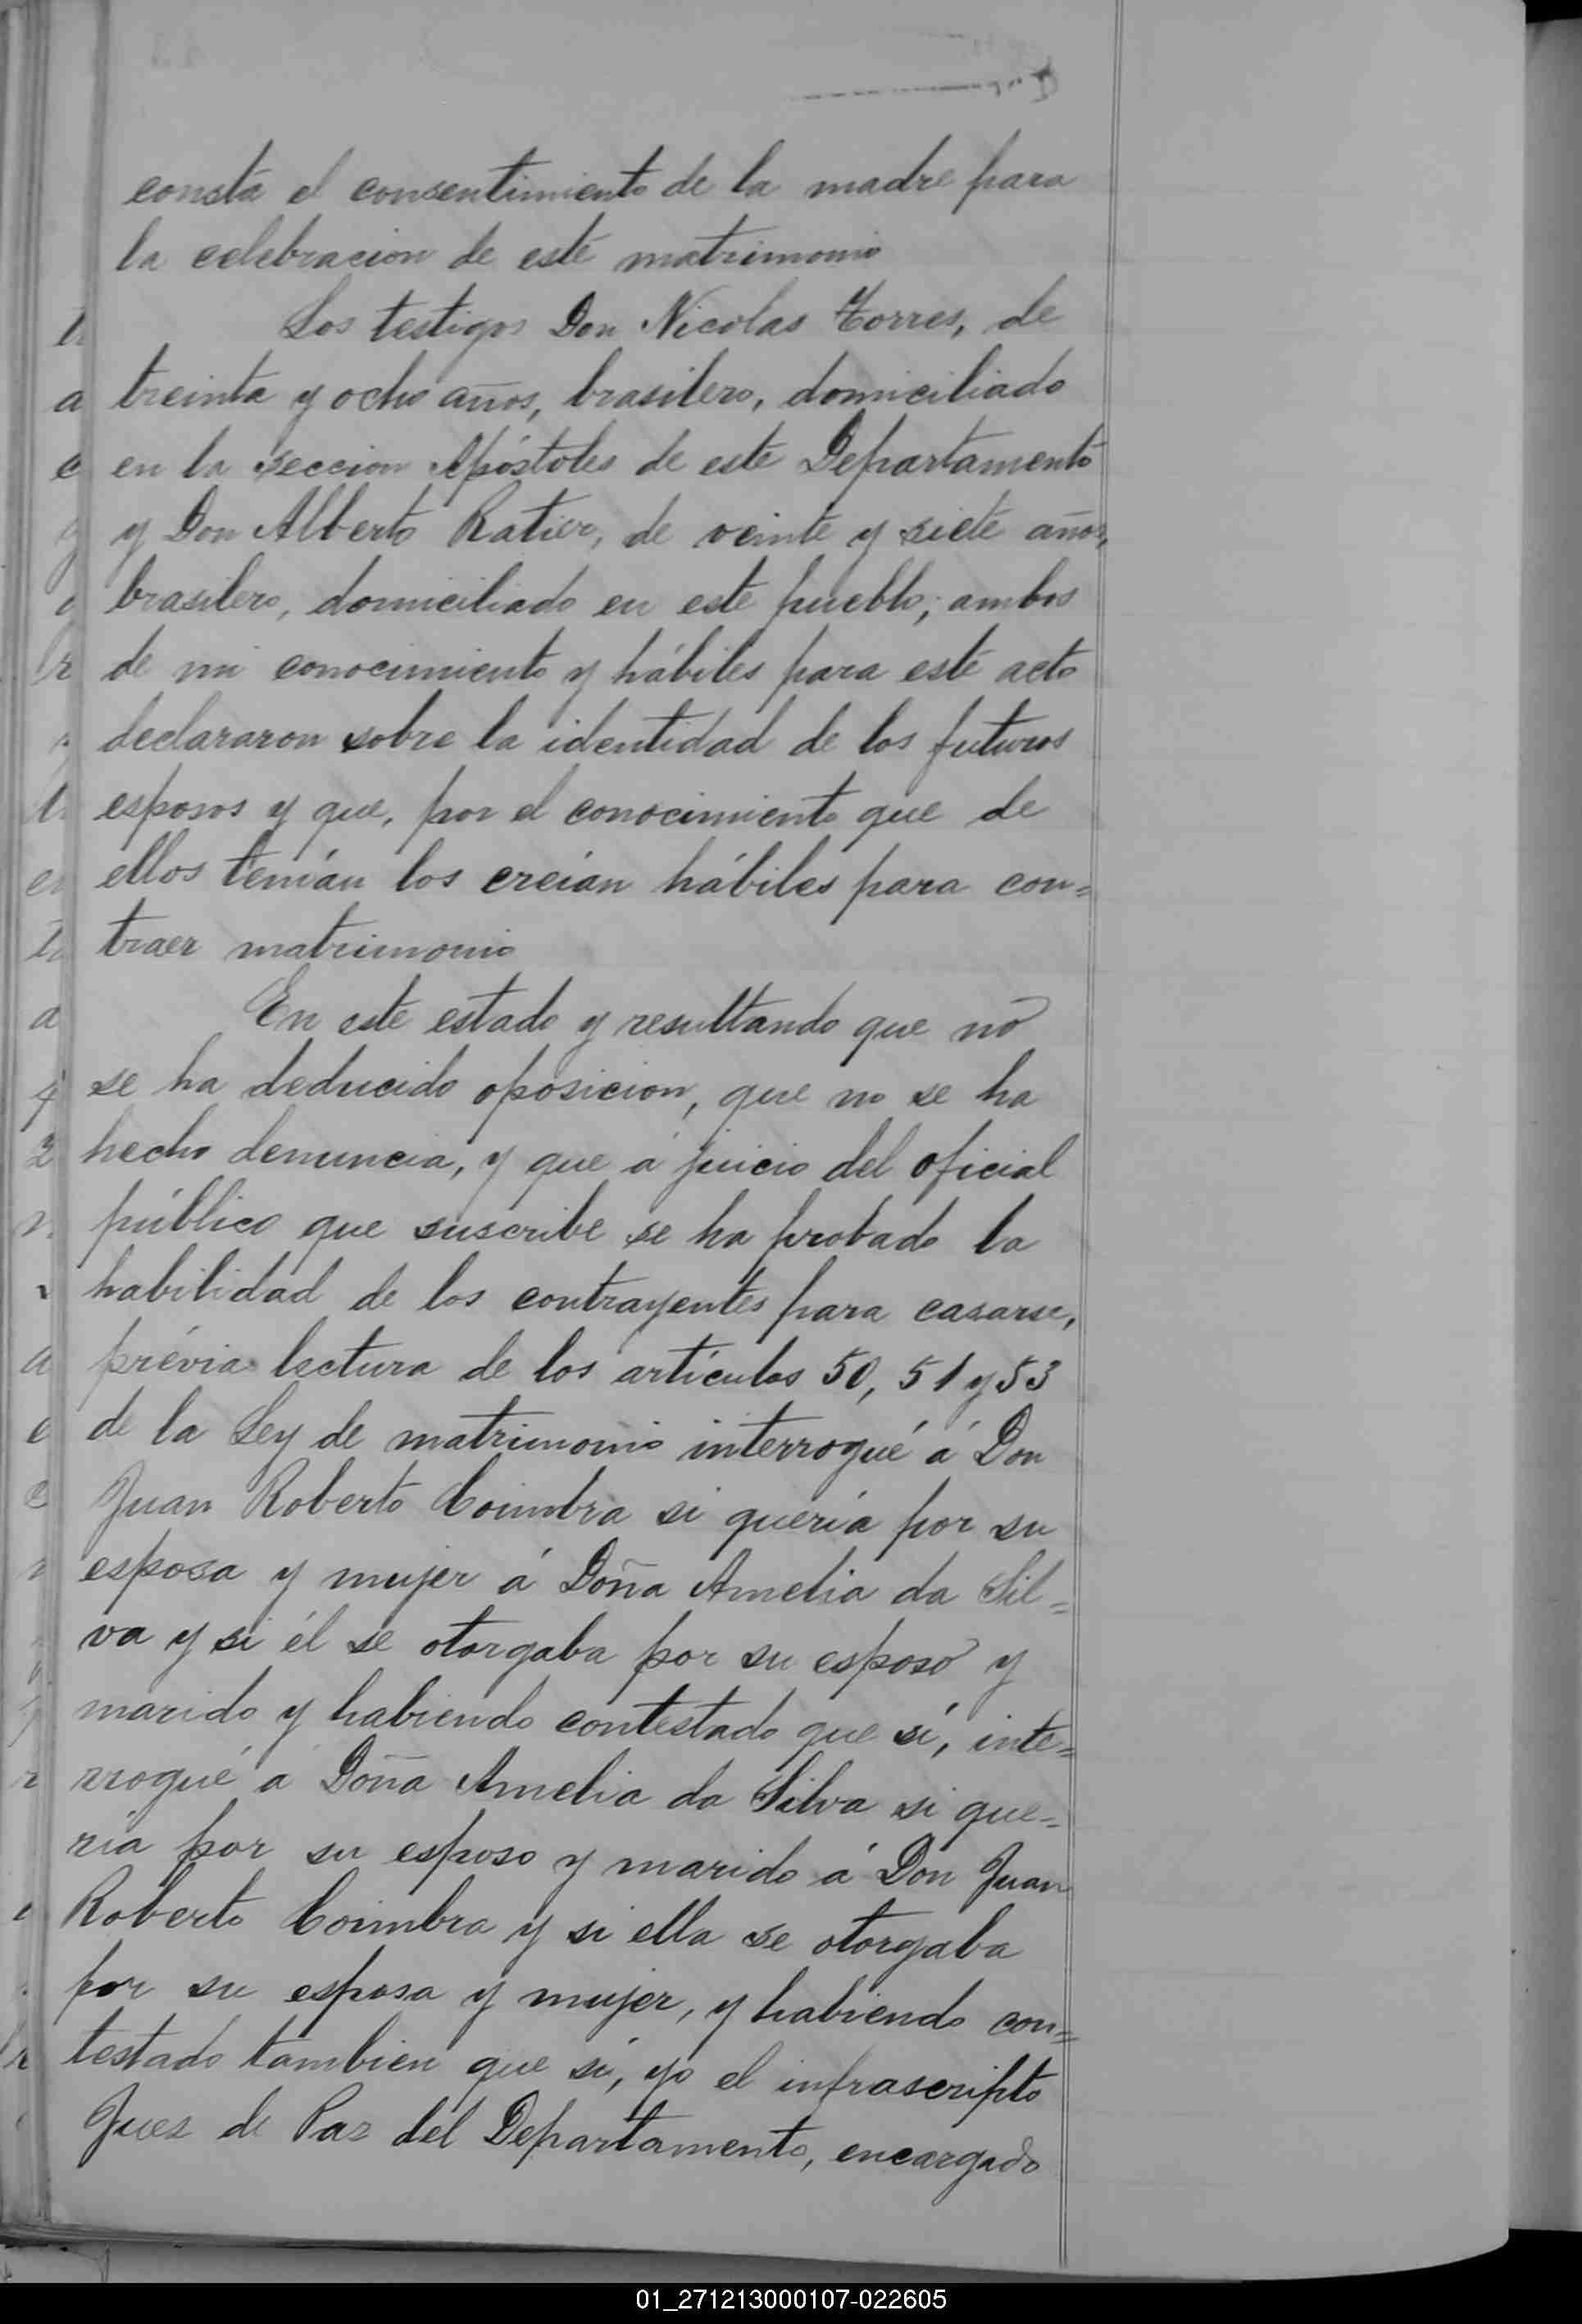 consta el consentimiento de la madre para
la celebracion de este matrimonio
Los testigos Don Nicolas Torres, de
treinta y ocho años, brasilero, domiciliado
en la seccion Apóstoles de este Departamento
y Don Alberto Ratier, de veinte y siete años,
brasilero, domiciliado en este pueblo; ambos
de mi conocimiento y hábiles para este acto
declararon sobre la identidad de los futuros
esposos y que, por el conocimiento que de
ellos tenían los creían hábiles para con=
traer matrimonio
En este estado y resultando que no
se ha deducido oposicion, que no se ha
hecho denuncia, y que á juicio del oficial
público que suscribe se ha probado la
habilidad de los contrayentes para casarse,
prévia lectura de los artículos 50, 51 y 53
de la Ley de matrimonio interrogué á Don
Juan Roberto Coimbra si quería por su
esposa y mujer á Doña Amelia da Sil=
va y si él se otorgaba por su esposo y
marido y habiendo contestado que sí, inte=
rrogué a Doña Amelia da Silva si que=
ría por su esposo y marido á Don Juan
Roberto Coimbra y si ella se otorgaba
por su esposa y mujer, y habiendo con=
testado tambien que sí, yo el infrascripto
Juez de Paz del Departamento, encargado
01_271213000107-022605